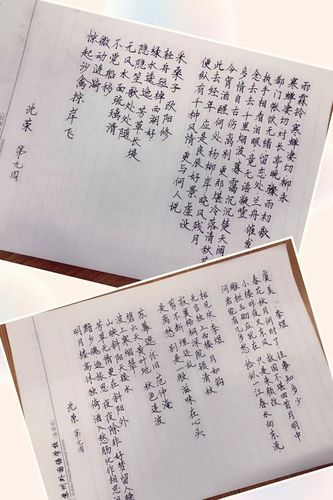 雨霖铃 寒蝉凄切 柳永
寒蝉凄切 对长亭晚 骤雨初歇
都门帐饮无绪 留恋处 兰舟催发
执手相看泪眼 竟无语凝噎
念去去 千里烟波 暮霭沉沉楚天阔
多情自古伤离别 更那堪冷落清秋节
今宵酒醒何处 杨柳岸 晓风残月
此去经年 应是良辰好景虚设
便纵有千种风情 更与何人说
采桑子 欧阳修
轻舟短棹西湖好
绿水逶迤 芳草长堤
隐隐笙歌处处随
无风水面琉璃滑
不觉船移
微动涟漪
惊起沙禽掠岸飞
第七周
虞美人 李煜
春花秋月何时了 往事知多少
小楼昨夜又东风 故国不堪回首月明中
雕栏玉砌应犹在 只是朱颜改
问君能有几多愁 恰似一江春水向东流
相见欢 李煜
无言独上西楼 月如钩
寂寞梧桐深院锁清秋
剪不断 理还乱 是离愁
别是一般滋味在心头
苏幕遮 怀旧 范仲淹
碧云天 黄叶地 秋色连波
波上寒烟翠
山映斜阳天接水
芳草无情 更在斜阳外
黯乡魂 追旅思 夜夜除非 好梦留人睡
明月楼高休独倚 酒入愁肠 化作相思泪
第七周
苏州外国语学校